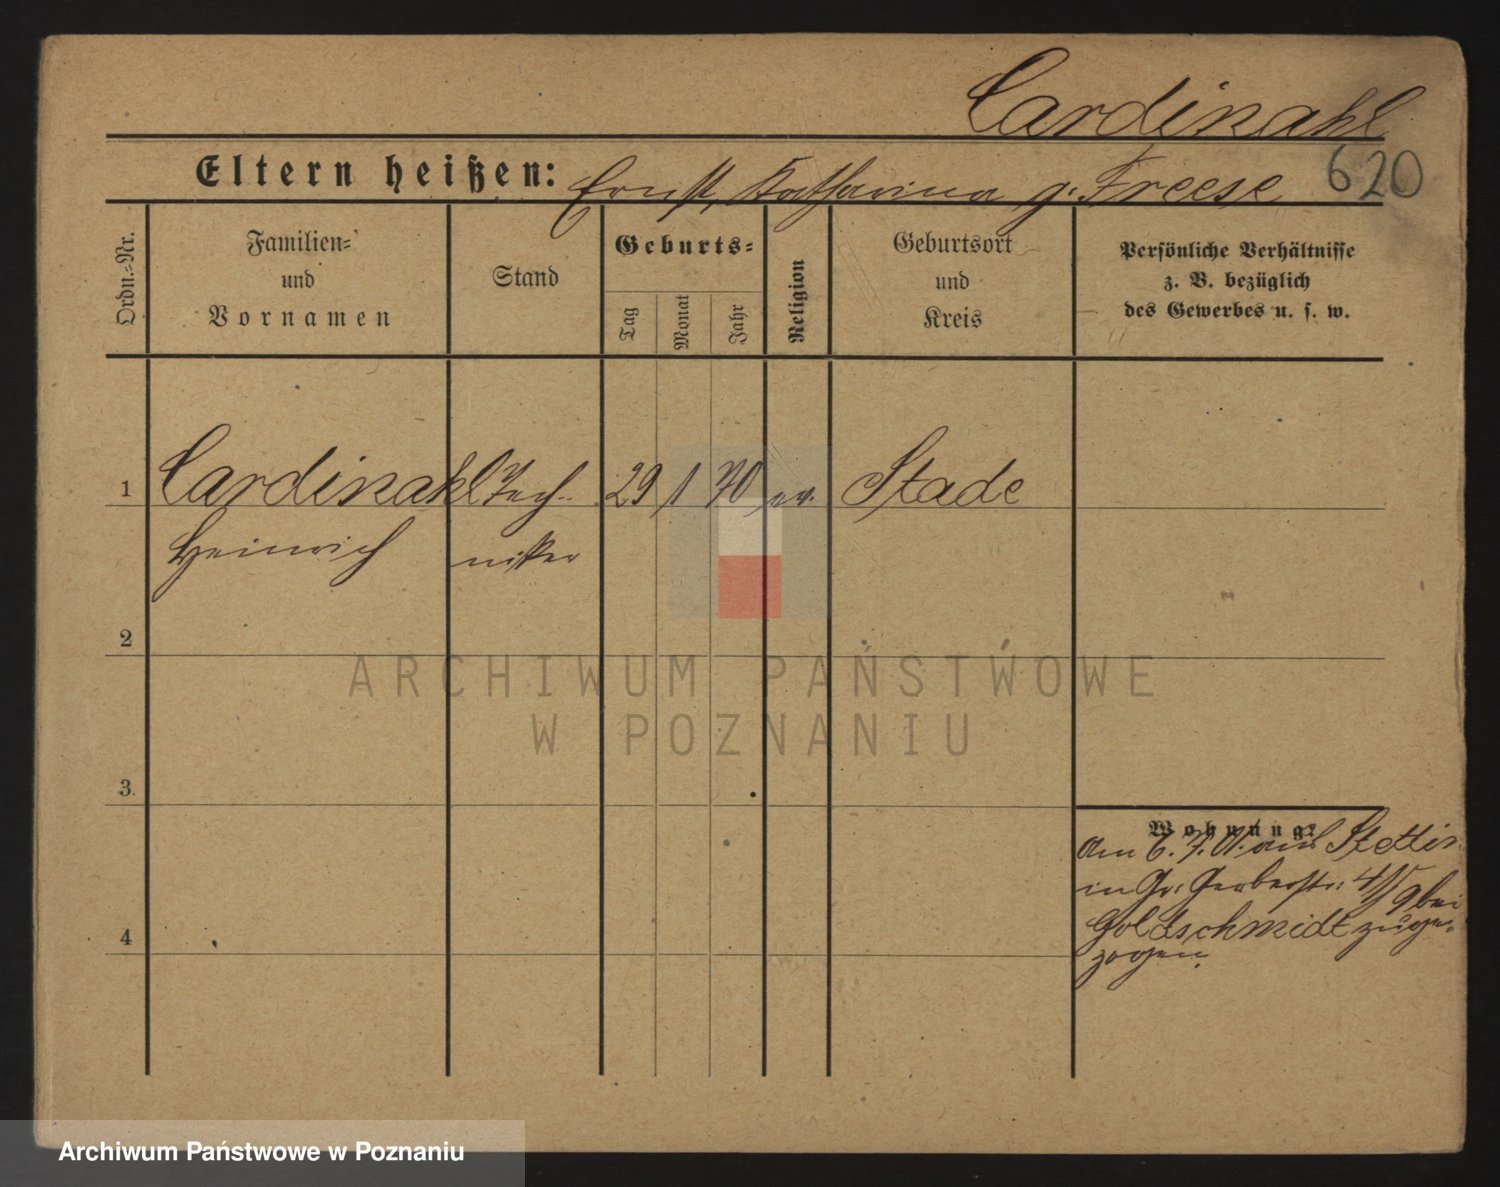 Cardinahl
620
Eltern heißen: Ernst, Katharina g. Freese
Ordn.-Nr.
Familien- und Vornamen
Stand
Geburts-
Tag
Monat
Jahr
Religion
Geburtsort und Kreis
Persönliche Verhältnisse
z. B. bezüglich
des Gewerbes u. s. w.
1 Cardinahl Tech- 29 1 70 ev. Stade
Heinrich niker
2
3
Wohnung:
am 6. 7. aus Stettin
in Gr. Gerberstr. 4/5 bei
Goldschmidt zuge-
zogen.
4
ARCHIWUM PAŃSTWOWE
W POZNANIU
Archiwum Państwowe w Poznaniu